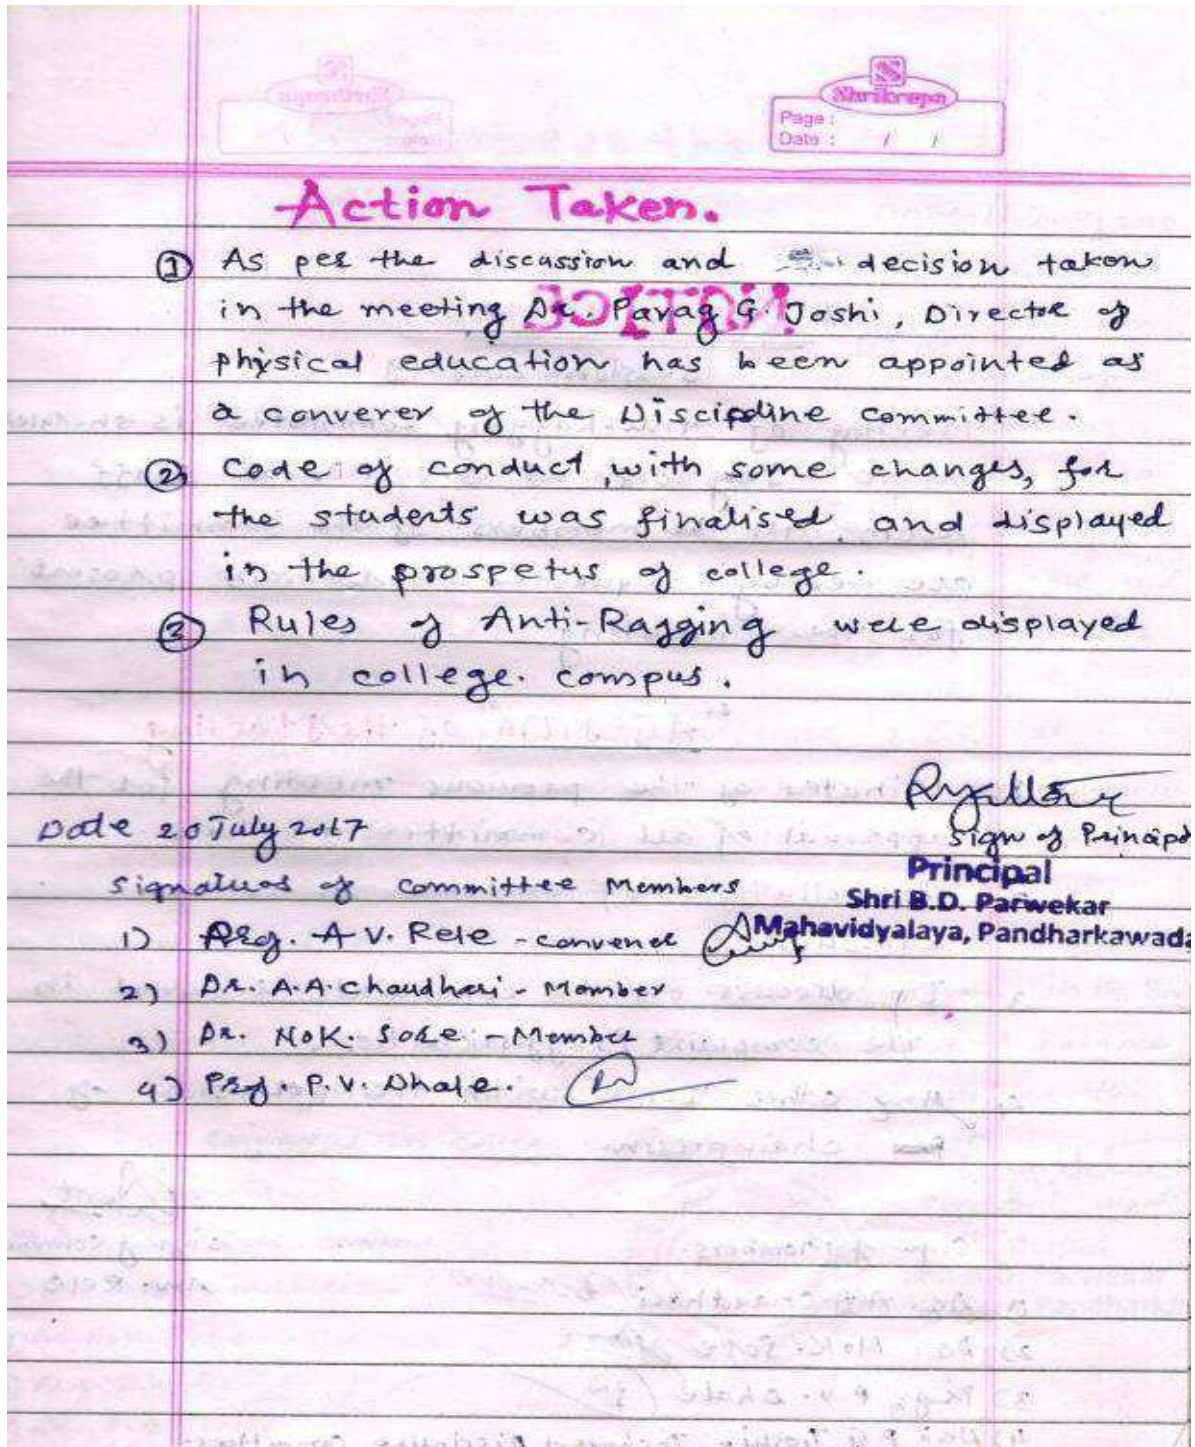 Shrikrupa
Page :
Date : / /
Action Taken.
① As per the discussion and decision taken
in the meeting Dr. Parag G. Joshi, Director of
physical education has been appointed as
a converer of the Discipline committee.
② Code of conduct, with some changes, for
the students was finalised and displayed
in the prospetus of college.
③ Rules of Anti-Ragging were displayed
in college. compus.
Date 20 July 2017
Sign of Principal
Principal
Shri B.D. Parwekar
Mahavidyalaya, Pandharkawada
Signatures of Committee Members
1) Prof. A V. Rele - convener
2) Dr. A.A. Chaudhari - Member
3) Dr. Sore - Member
4) Prof. P.V. Dhale.